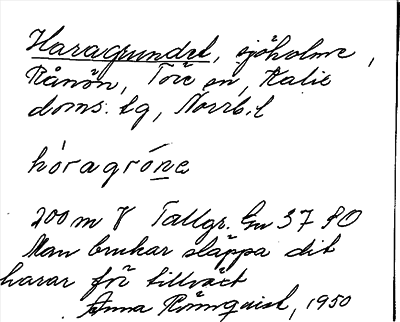 Haragrundet, sjöholme,
Rånön, Töre sn, Kalix
doms. lg, Norrb. l
hóragróne
200 m V Tallgr. Gm 37 SO
Man brukar släppa dit
harar för tillväxt
Anna Rönnquist, 1950